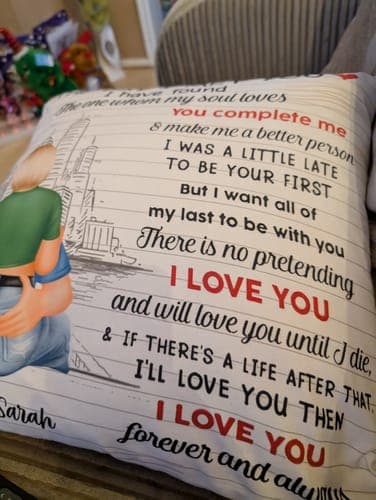 I have found
The one whom my soul loves
You complete me
& make me a better person
I WAS A LITTLE LATE
TO BE YOUR FIRST
But I want all of
my last to be with you
There is no pretending
I LOVE YOU
and will love you until I die,
& IF THERE'S A LIFE AFTER THAT,
I'LL LOVE YOU THEN
I LOVE YOU
forever and always
Sarah